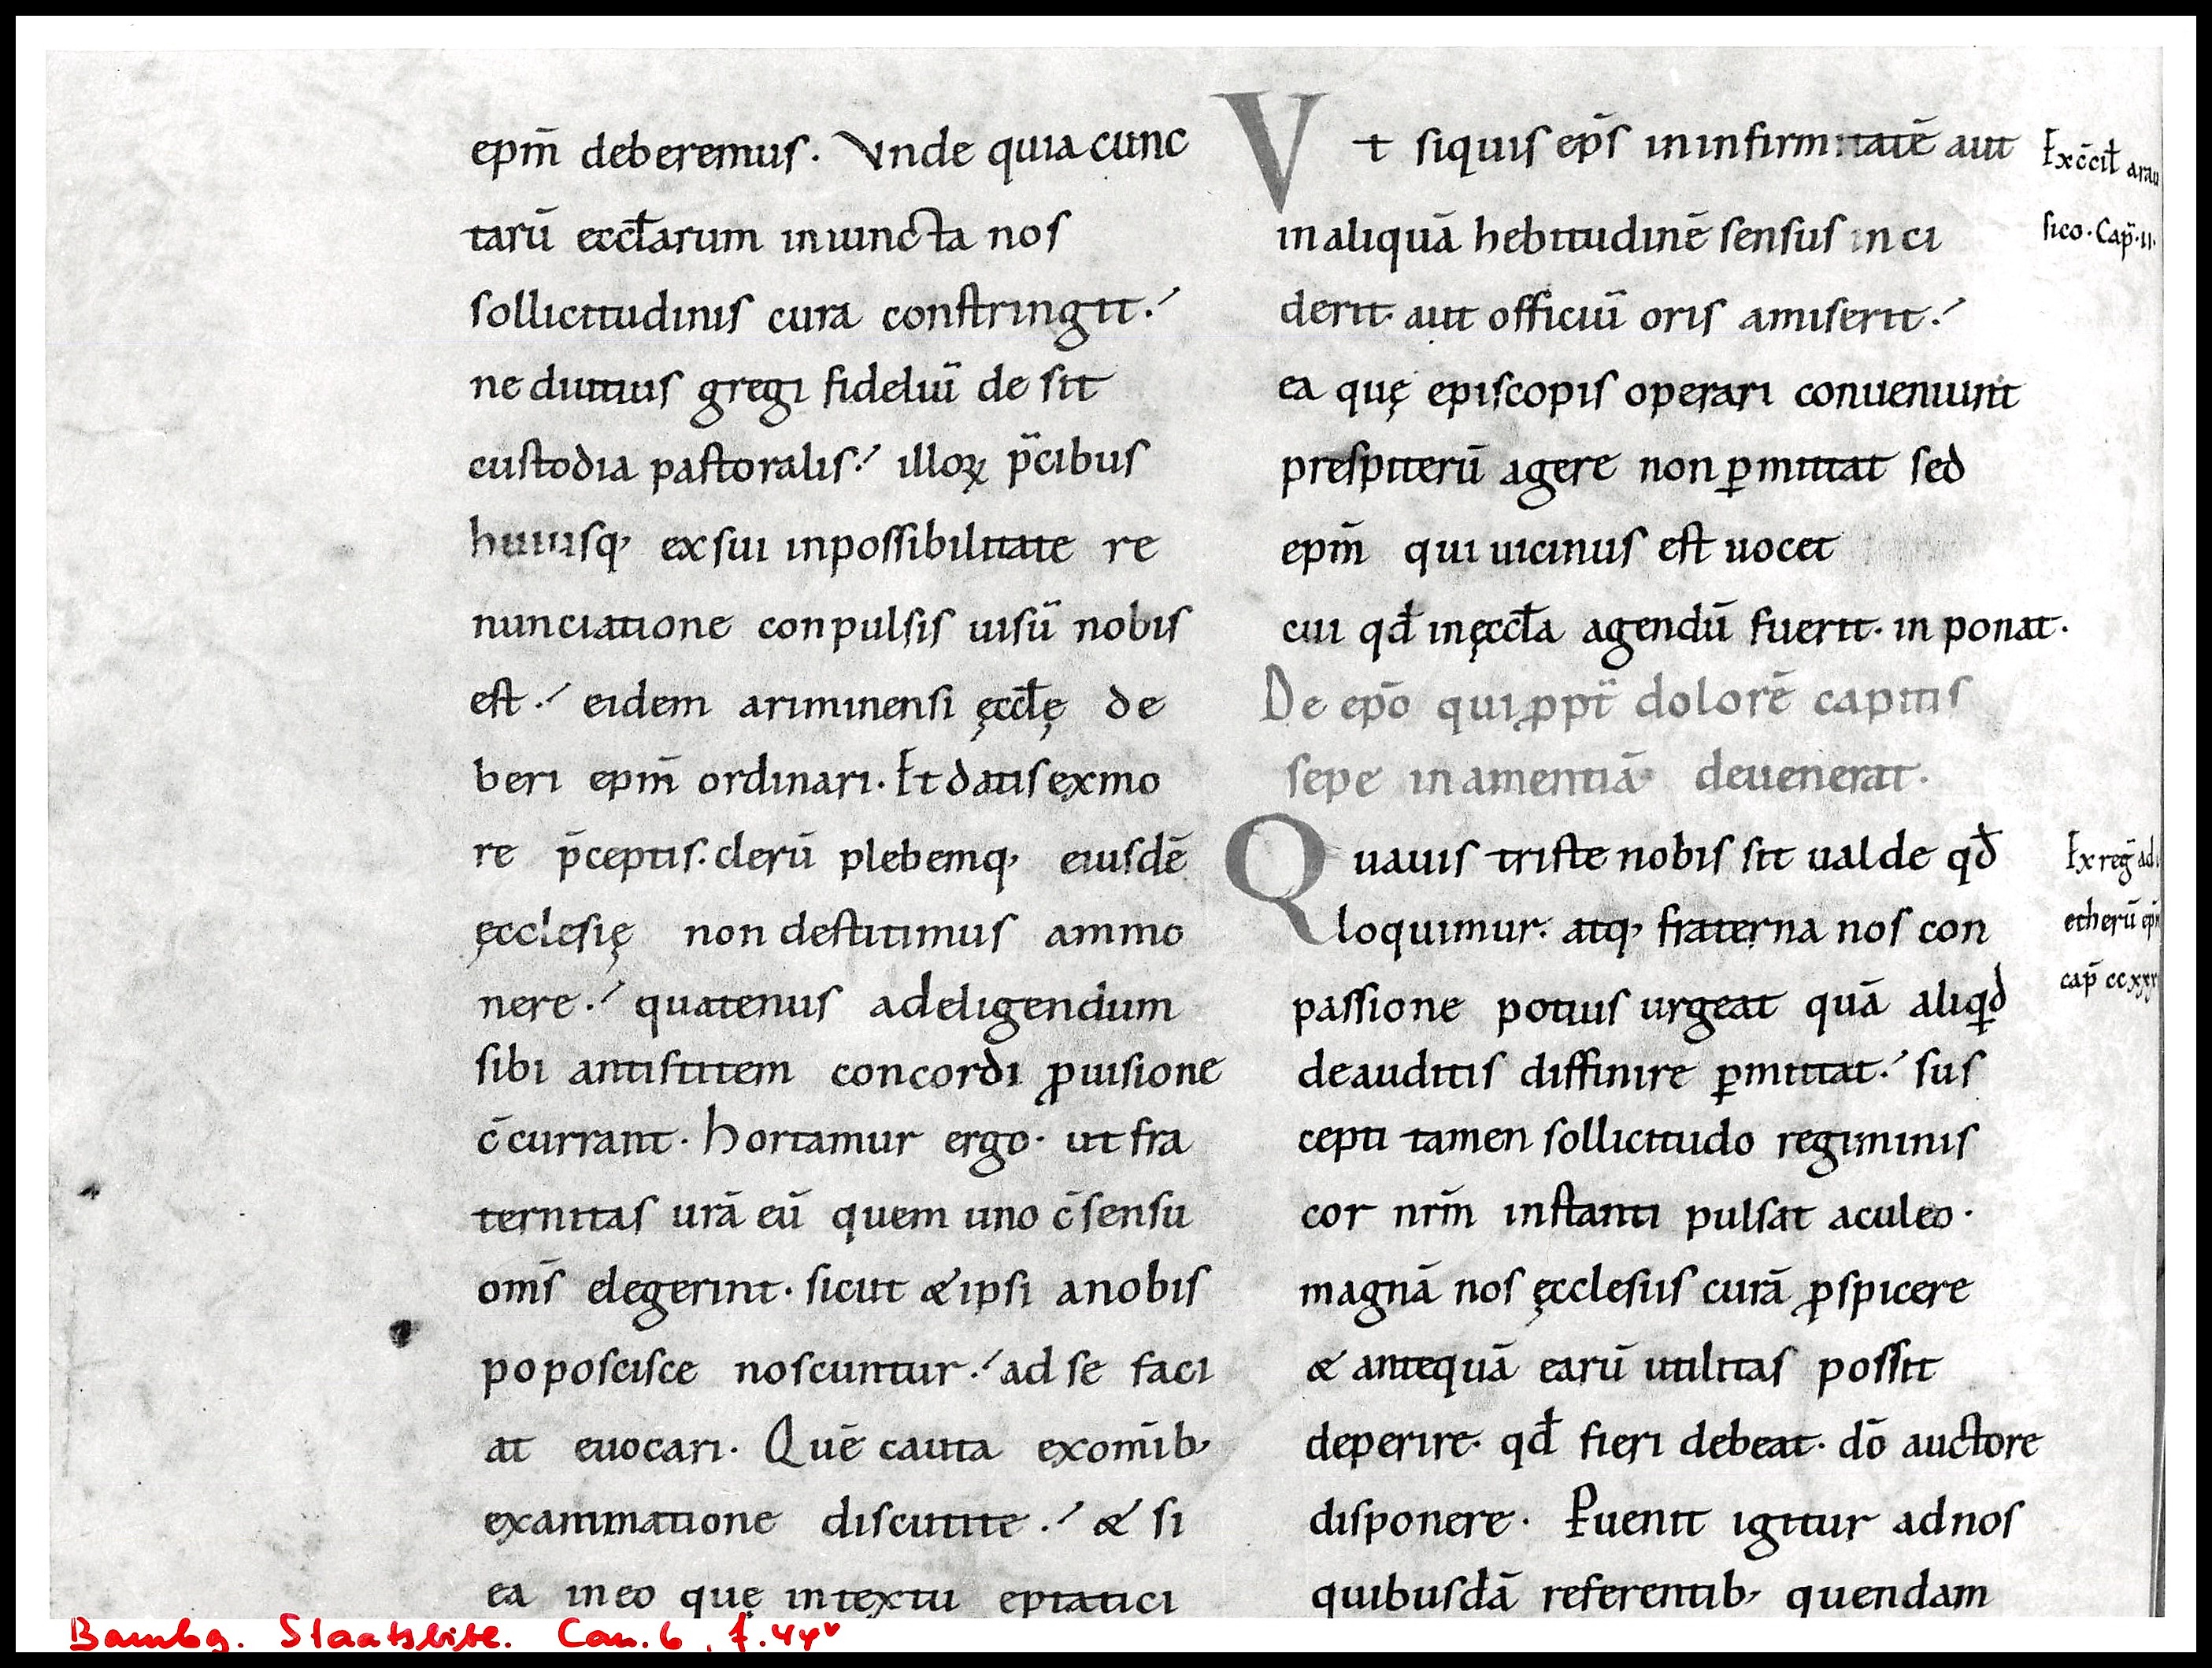 ep̄m deberemus. Vnde quia cunc
tarū eccl̄arum iniuncta nos
sollicitudinis cura constringit.
ne diutius gregi fideliū de sit
custodia pastoralis. illoꝝ p̄cibus
huiusq; ex sui inpossibilitate re
nunciatione conpulsis uisū nobis
est. eidem ariminensi ęccl̄ę de
beri ep̄m ordinari. Et datis exmo
re p̄ceptis. clerū plebemq; eiusdē
ęcclesię non destitimus ammo
nere. quatenus adeligendum
sibi antistitem concordi ꝓuisione
c̄currant. hortamur ergo. ut fra
ternitas urā eū quem uno c̄sensu
om̄s elegerint. sicut & ipsi anobis
poposcisce noscuntur. ad se faci
at euocari. Quē cauta exom̄ib;
examinatione discutite. & si
ea ineo quę intextu eptatici
Vt siquis ep̄s ininfirmitatē aut
inaliquā hebitudinē sensus inci
derit. aut officiū oris amiserit.
ea quę episcopis operari conueniunt
prespiterū agere non ꝑmittat sed
ep̄m qui uicinus est uocet
cui qđ inęccl̄a agendū fuerit. in ponat.
De ep̄o qui ꝓpt̄ dolorē capitis
sepe inamentiā deuenerat.
Quauis triste nobis sit ualde qđ
loquimur. atq; fraterna nos con
passione potius urgeat quā aliqđ
deauditis diffinire ꝑmittat. sus
cepti tamen sollicitudo regiminis
cor nr̄m instanti pulsat aculeo.
magnā nos ęcclesiis curā ꝓspicere
& antequā earū utilitas possit
deperire. qđ fieri debeat. dō auctore
disponere. Puenit igitur adnos
quibusdā referentib; quendam
Ex c̄cil̄ arau
sico. Cap̄. II.
Ex reḡ ad
etherū ep̄
cap̄ ccxxx
Bambg. Staatsbibl. Can. 6, f. 44v